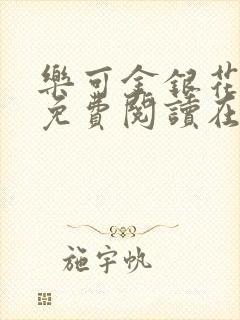 樂可金銀花
免費閱讀在
施宇帆